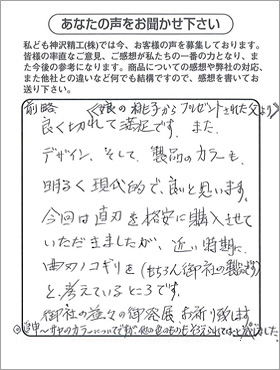 あなたの声をお聞かせ下さい
私ども神沢精工(株)では今、お客様の声を募集しております。
皆様の率直なご意見、ご感想が私たちの一番の力となり、ま
た今後の参考になります。商品についての感想や弊社の対応、
また他社との違いなど何でも結構ですので、感想を書いてお
送り下さい。
前略 《娘の桃子からプレゼントされた父より》
良く切れて満足です。また、
デザイン、そして、製品のカラーも、
明るく現代的で、良いと思います。
今回は直刃を格安に購入させて
いただきましたが、近い時期に
曲刃ノコギリを(もちろん御社の製品です)
と考えているところです。
御社の益々の御発展、お祈り致します
追申 〜サヤのカラーについてですが、他の色のもの